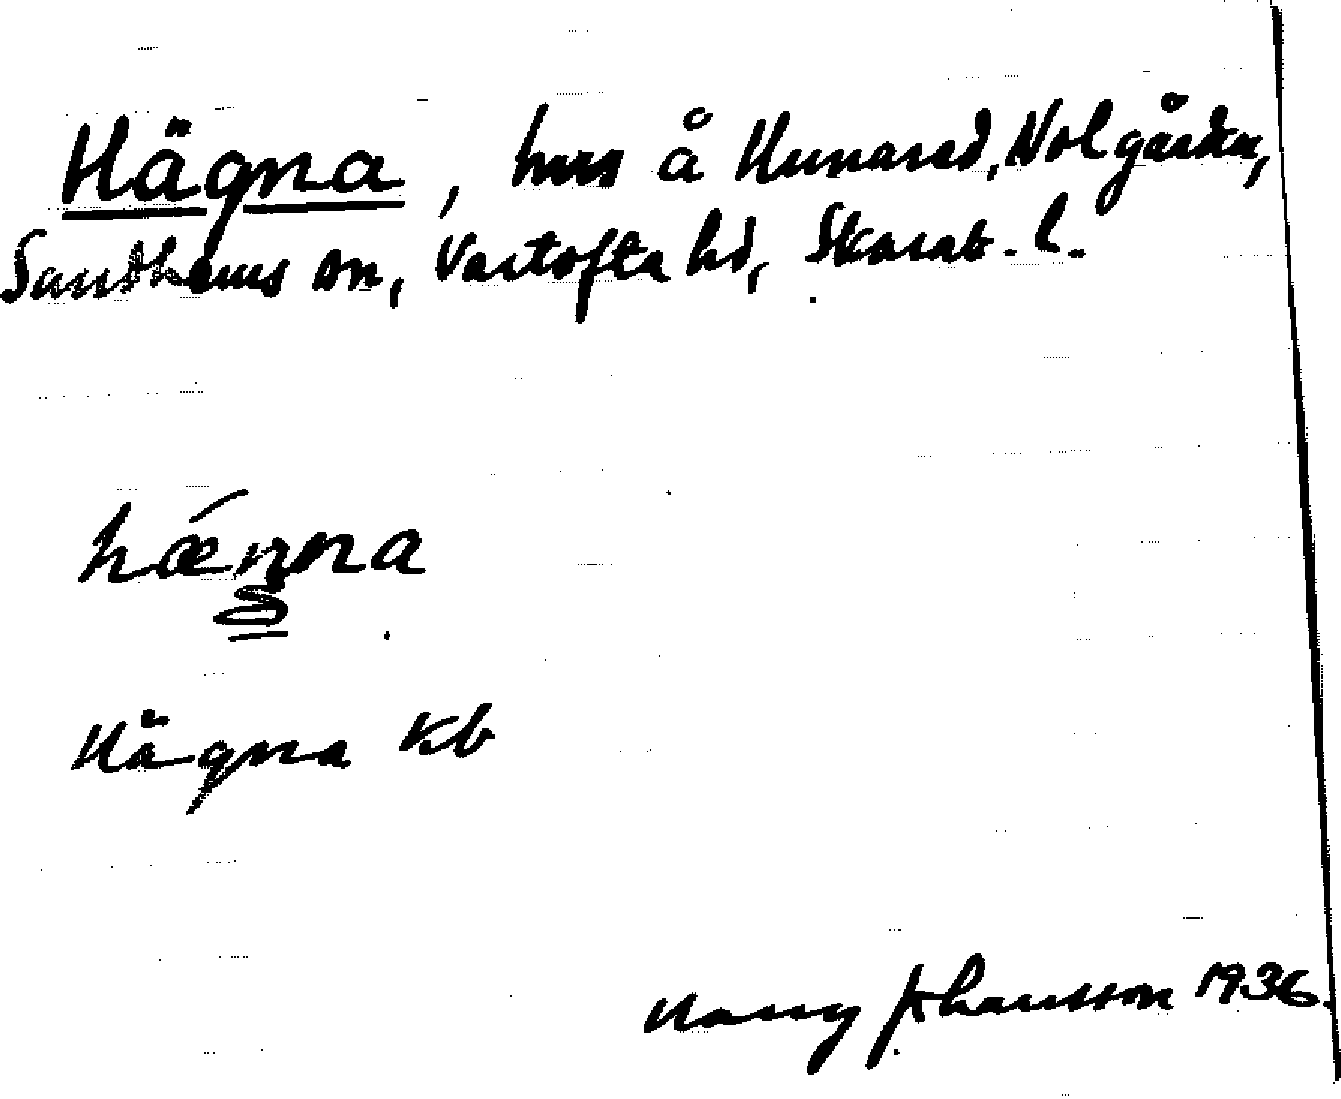 Hägna, hus å Hunared, Nolgården,
Sandhems sn, Vartofta hd, Skarab. l.
hǽŋna
Hägna Kb
Harry Johansson 1936.